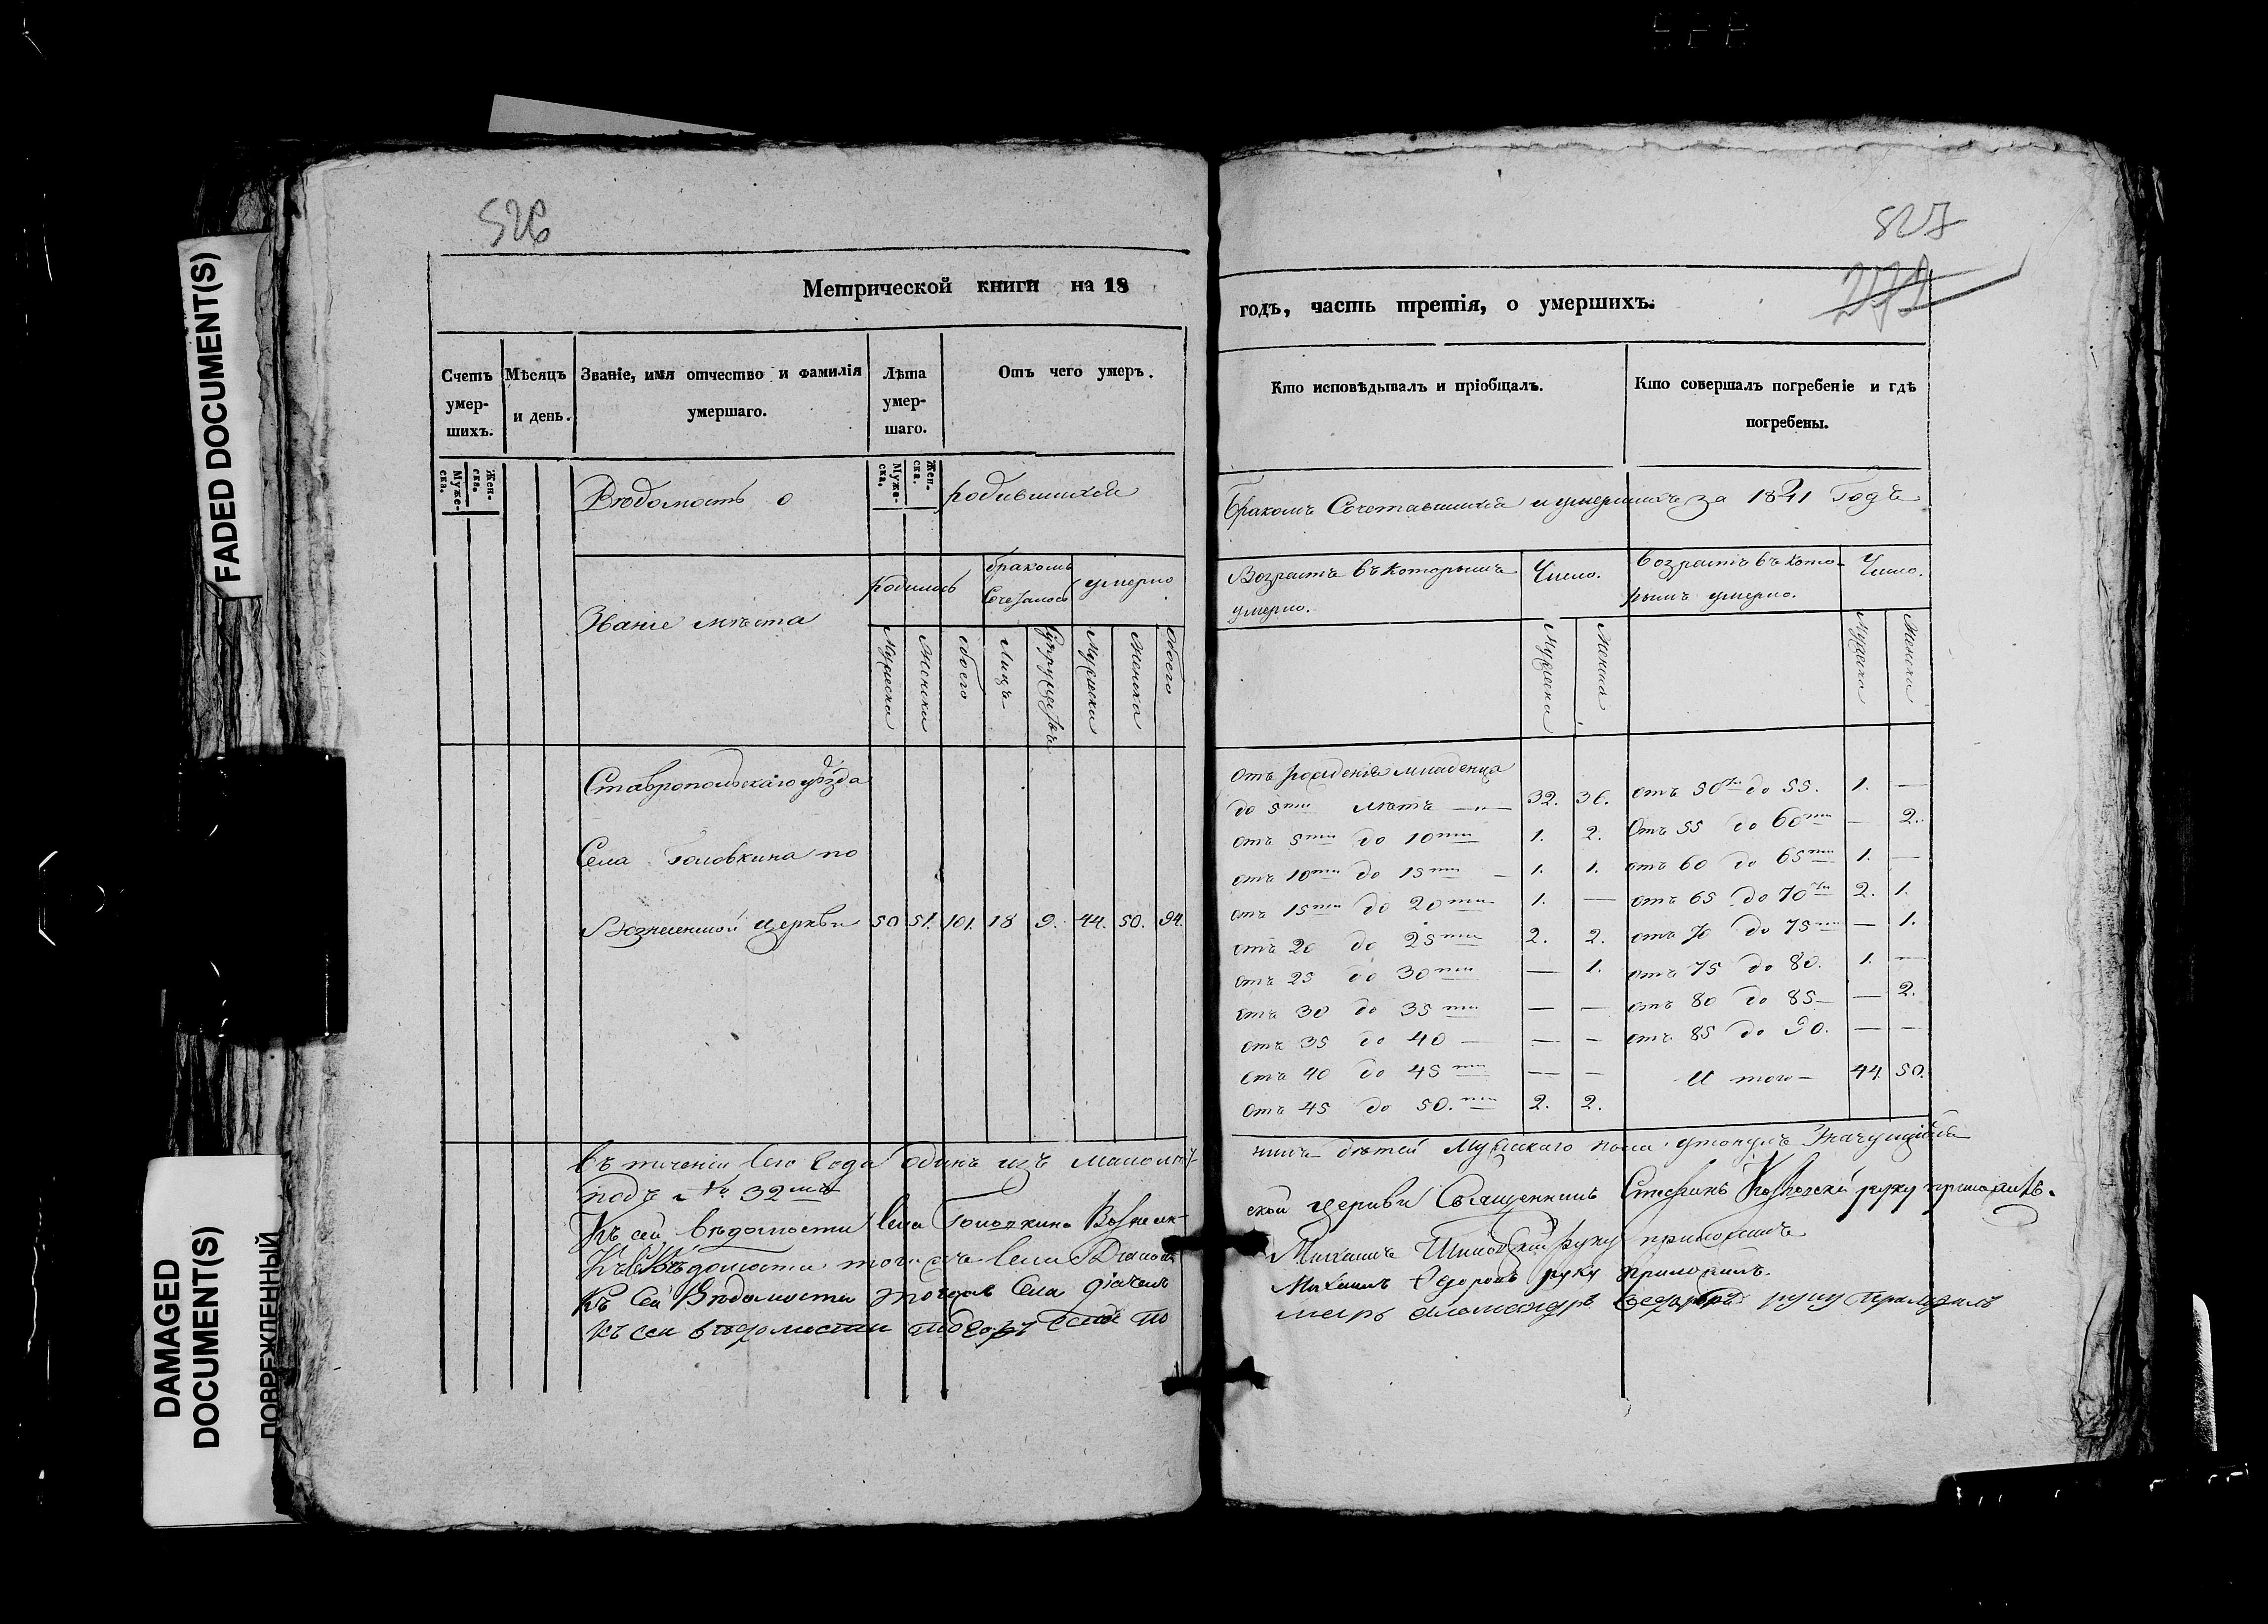 FADED DOCUMENT(S)
DAMAGED
DOCUMENT(S)
ПОВРЕЖДЕННЫЙ
526
Метрической книги на 18
Счетъ умер-шихъ.
Мѣсяцъ и день.
Званіе, имя отчество и фамилія умершаго.
Лѣта умер-шаго.
Отъ чего умеръ.
Муже-ска.
Жен-ска.
Муже-ска.
Жен-ска.
Вѣдомость о родившихся
Званіе мѣста
родилось
бракомъ
умерло
Мужеска
Женска
обоего
Лицъ
Мужеска
Женска
обоего
Ставропольскаго уѣзда
Села Головкина по
Вознесенской церкви 50 51. 101. 18 9. 44. 50. 94.
въ теченіи сего года одинъ изъ малолѣт-
подъ № 32мъ
Къ сей вѣдомости села Головкина Вознесен-
Къ сей Вѣдомости тогожъ села Діаконъ
Къ Сей Вѣдомости тогожъ Села дьячекъ
Къ сей вѣдомости тогожъ села по
527
годъ, часть третія, о умершихъ.
Кто исповѣдывалъ и пріобщалъ.
Кто совершалъ погребеніе и гдѣ погребены.
бракомъ Сочетавшихся и умершихъ за 1841 Годъ
Возрастъ въ которомъ умерло.
Число.
возрастъ въ кото-ромъ умерло.
Число.
Мужеска
Женска
Мужеска
Женска
отъ рожденія младенца
до 5ти лѣтъ — 32. 36. отъ 50ти до 55. 1. —
отъ 5ти до 10ти 1. 2. Отъ 55 до 60ти — 2.
отъ 10ти до 15ти — 1. 1. отъ 60 до 65ти 1. —
отъ 15ти до 20ти 1. — отъ 65 до 70ти 2. 1.
отъ 20 до 25ти 2. 2. отъ 70 до 75ти — 1.
отъ 25 до 30ти — 1. отъ 75 до 80. 1. —
отъ 30 до 35ти — — отъ 80 до 85 — — 2.
отъ 35 до 40 — — — отъ 85 до 90. — —
отъ 40 до 45ти — — И того — 44. 50.
Отъ 45 до 50.ти 2. 2.
нихъ дѣтей Мужскаго пола утонулъ Значущійся
ской церкви Священникъ руку приложилъ.
Михаилъ руку приложилъ
Михаилъ Федоровъ руку приложилъ.
марь Александръ руку приложилъ